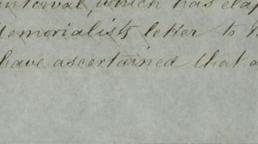 interval, which has elap
Memorialists letter to h
have ascertained that a